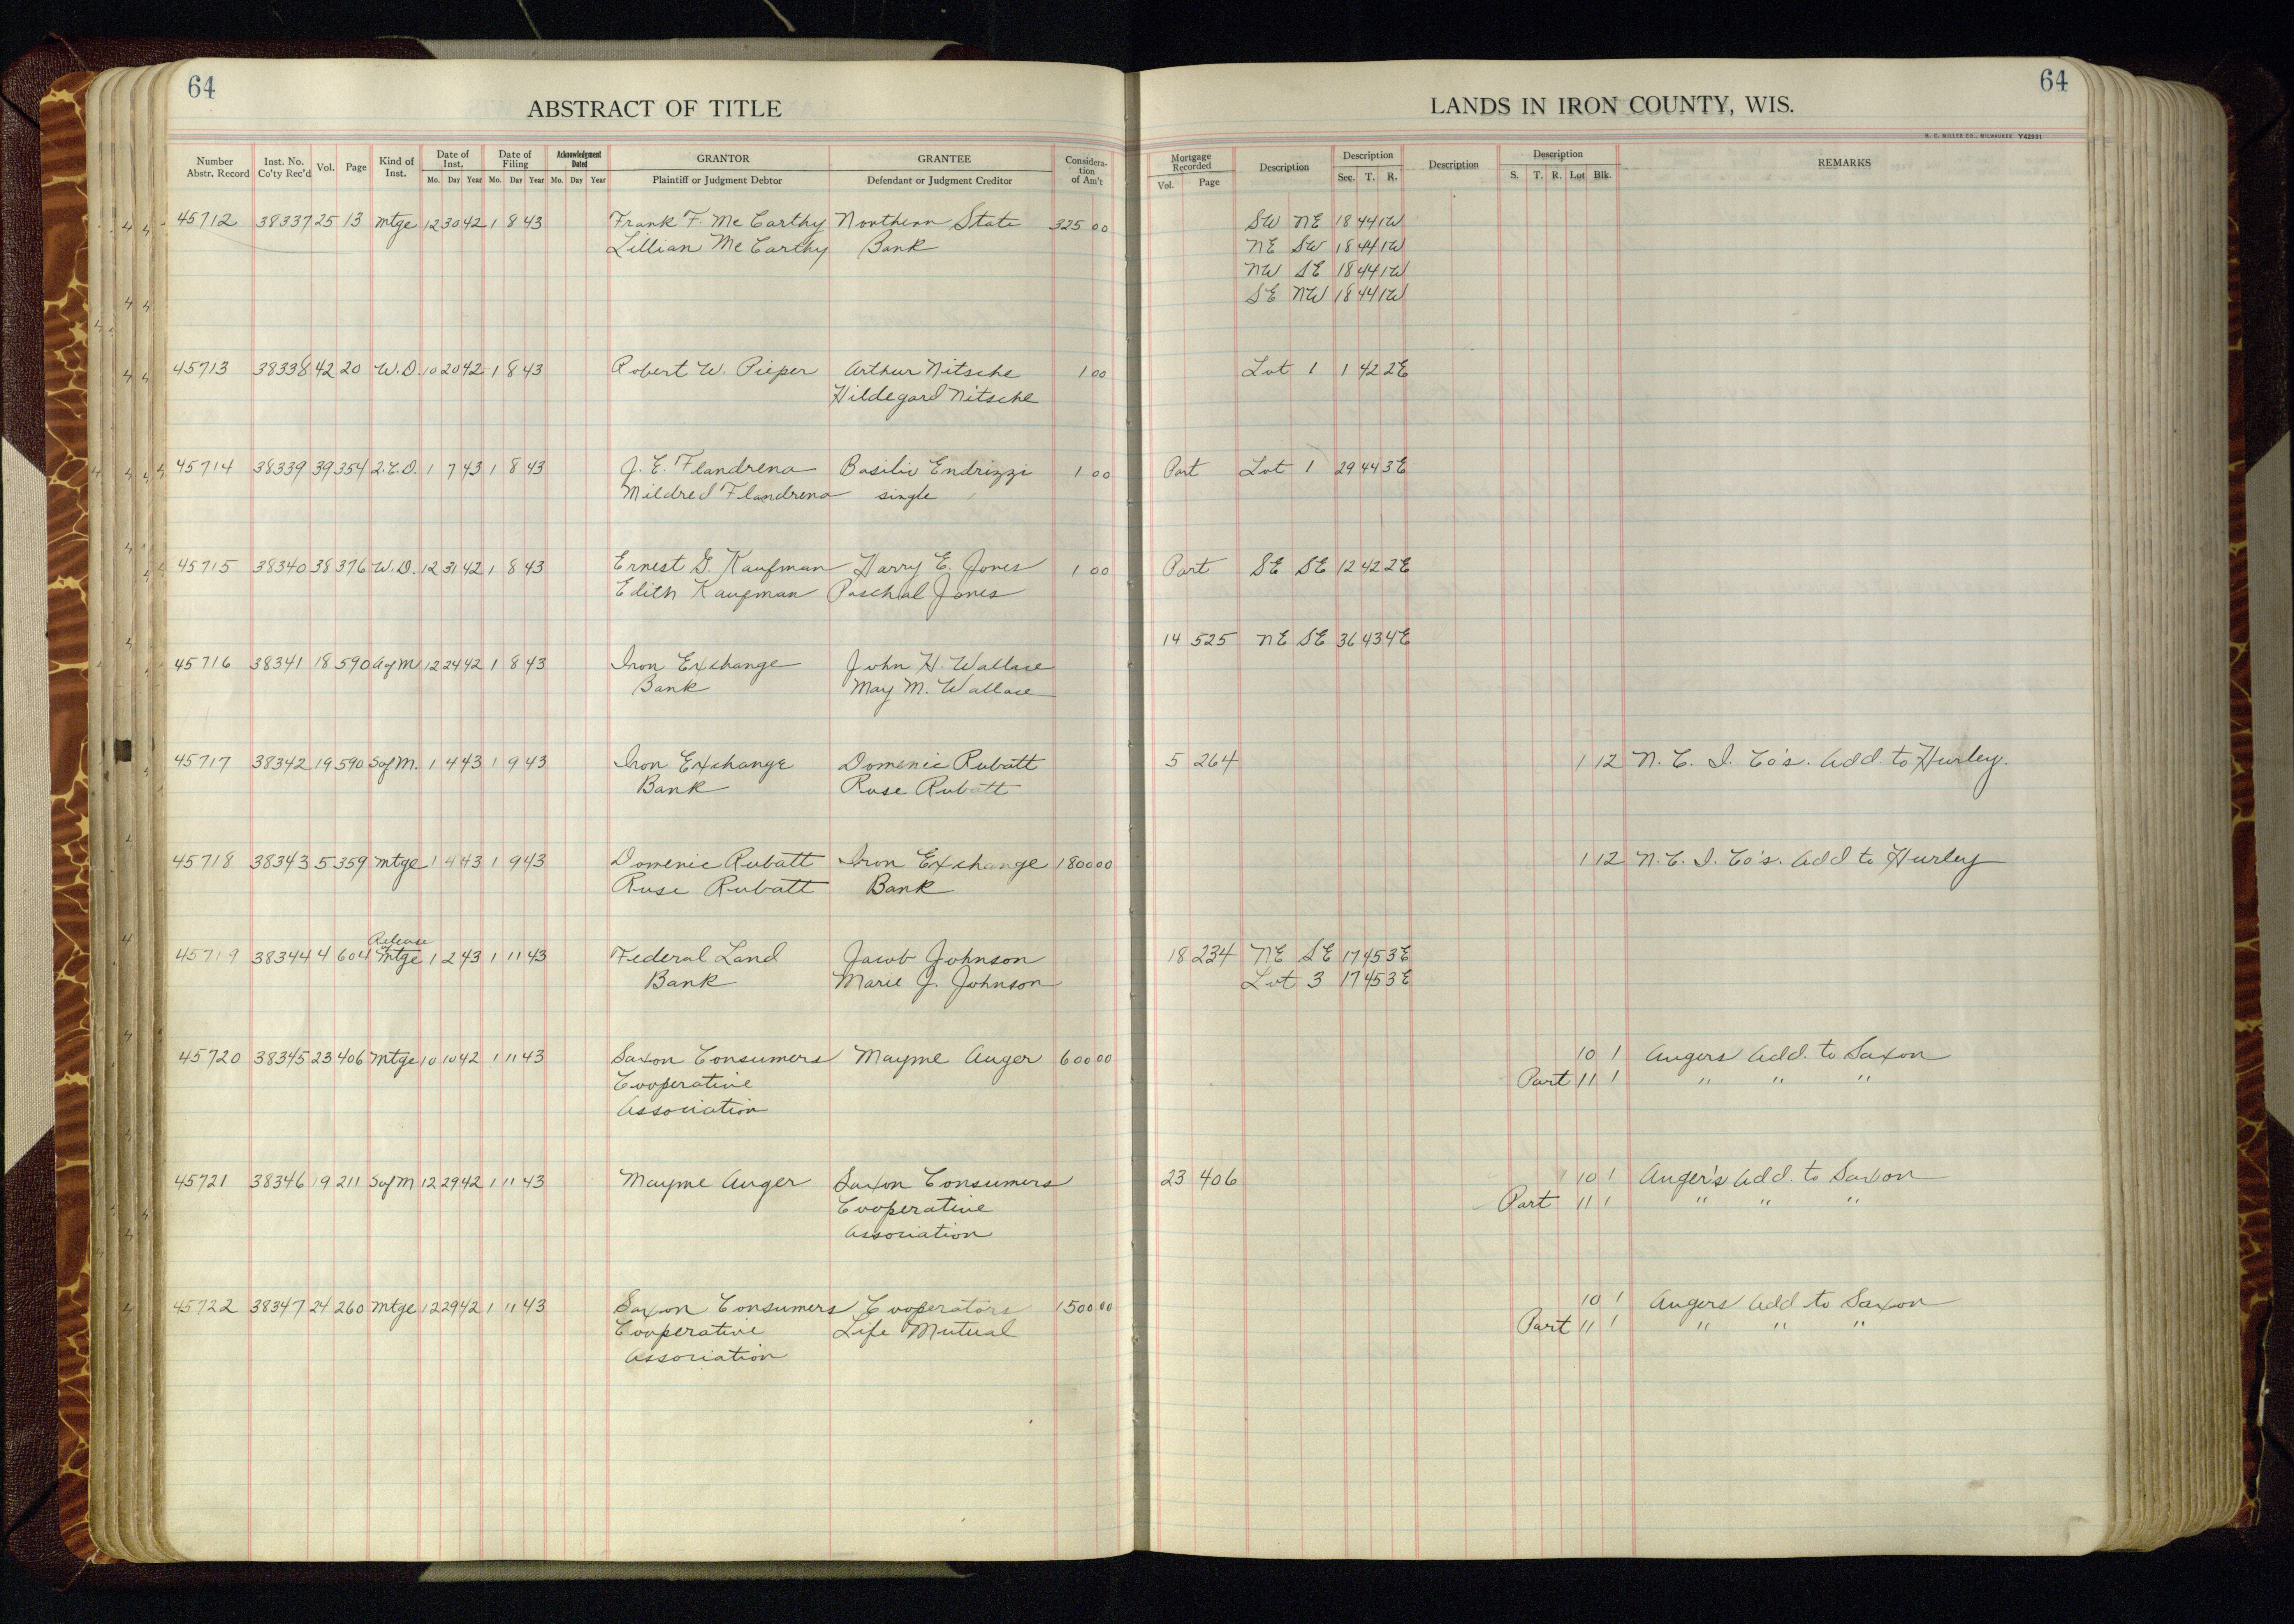 64
ABSTRACT OF TITLE
Number Abstr. Record Inst. No. Co'ty Rec'd Vol. Page Kind of Inst. Date of Inst. Mo. Day Year Date of Filing Mo. Day Year Acknowledgment Dated Mo. Day Year GRANTOR Plaintiff or Judgment Debtor GRANTEE Defendant or Judgment Creditor Considera-tion of Am't
45712 38337 25 13 Mtge 12 30 42 1 8 43 Frank F McCarthy Northern State 325 00
Lillian McCarthy Bank
45713 38338 42 20 W.D. 10 20 42 1 8 43 Robert W. Pieper Arthur Nitsche 1 00
Hildegard Nitsche
45714 38339 39 354 Q.C.D. 1 7 43 1 8 43 J. E. Flandrena Basilio Endrizzi 1 00
Mildred Flandrena single
45715 38340 38 376 W.D. 12 31 42 1 8 43 Ernest G. Kaufman Harry E. Jones 1 00
Edith Kaufman Paschal Jones
45716 38341 18 590 12 24 42 1 8 43 Iron Exchange John H. Wallace
Bank May M. Wallace
45717 38342 19 590 Sof M. 1 4 43 1 9 43 Iron Exchange Domenic Rubatt
Bank Rose Rubatt
45718 38343 5 359 Mtge 1 4 43 1 9 43 Domenic Rubatt Iron Exchange 1800 00
Rose Rubatt Bank
Release of
45719 38344 4 604 Mtge 1 2 43 1 11 43 Federal Land Jacob Johnson
Bank Marie J. Johnson
45720 38345 23 406 Mtge 10 10 42 1 11 43 Saxon Consumers Mayme Auger 600 00
Cooperative
Association
45721 38346 19 211 Sof M 12 29 42 1 11 43 Mayme Auger Saxon Consumers
Cooperative
Association
45722 38347 24 260 Mtge 12 29 42 1 11 43 Saxon Consumers Cooperators 1500 00
Cooperative Life Mutual
Association
64
LANDS IN IRON COUNTY, WIS.
H. C. MILLER CO., MILWAUKEE Y42931
Mortgage Recorded Vol. Page Description Description Sec. T. R. Description Description S. T. R. Lot Blk. REMARKS
SW NE 18 44 1W
NE SW 18 44 1W
NW SE 18 44 1W
SE NW 18 44 1W
Lot 1 1 42 2E
Part Lot 1 29 44 3E
Part SE SE 12 42 2E
14 525 NE SE 36 43 4E
5 264 1 12 N. C. I. Co's. Add. to Hurley.
1 12 N. C. I. Co's. Add to Hurley
18 234 NE SE 17 45 3E
Lot 3 17 45 3E
10 1 Augers Add. to Saxon
Part 11 1 " " "
23 406 10 1 Auger's Add. to Saxon
Part 11 1 " " "
10 1 Augers Add to Saxon
Part 11 1 " " "